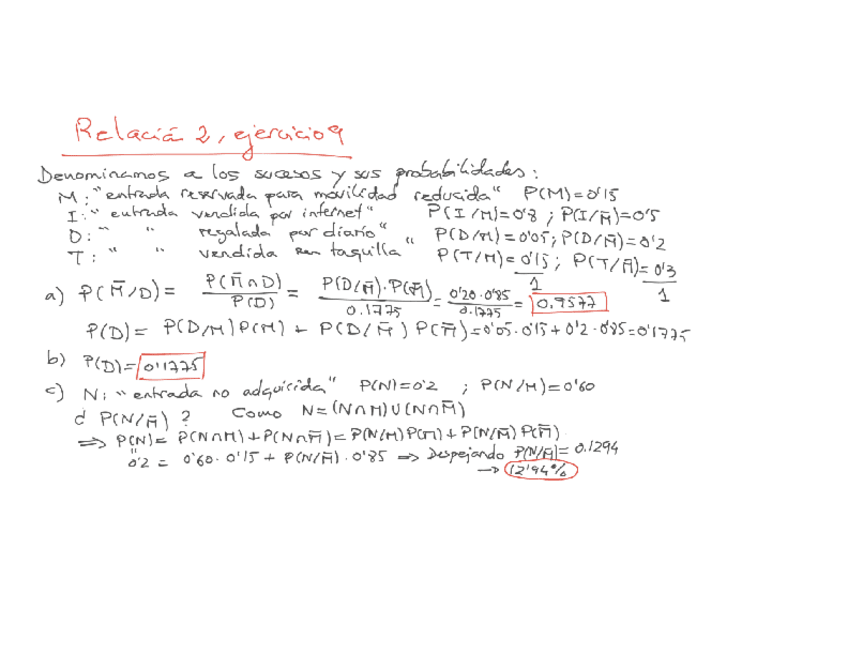 Relación 2, ejercicio 9
Denominamos a los sucesos y sus probabilidades:
M: "entrada reservada para movilidad reducida" P(M)=0'15
I: " entrada vendida por internet" P(I/M)=0'8 ; P(I/M̅)=0'5
D: " " regalada por diario" P(D/M)=0'05; P(D/M̅)=0'2
T: " " vendida en taquilla " P(T/M)=0'15; P(T/M̅)=0'3
1 1
a) P(M̅/D)= P(M̅∩D)/P(D) = P(D/M̅)·P(M̅)/0.1775 = 0'20·0'85/0.1775 = 0.9577
P(D)= P(D/M)P(M) + P(D/M̅) P(M̅)=0'05·0'15+0'2·0'85=0'1775
b) P(D)=0'1775
c) N: "entrada no adquirida" P(N)=0'2 ; P(N/M)=0'60
¿ P(N/M̅) ? Como N=(N∩M)∪(N∩M̅)
⇒ P(N)= P(N∩M)+P(N∩M̅)=P(N/M)P(M)+P(N/M̅)P(M̅)
" 0'2 = 0'60·0'15+P(N/M̅)·0'85 ⇒ Despejando P(N/M̅)=0.1294
→ 12'94%